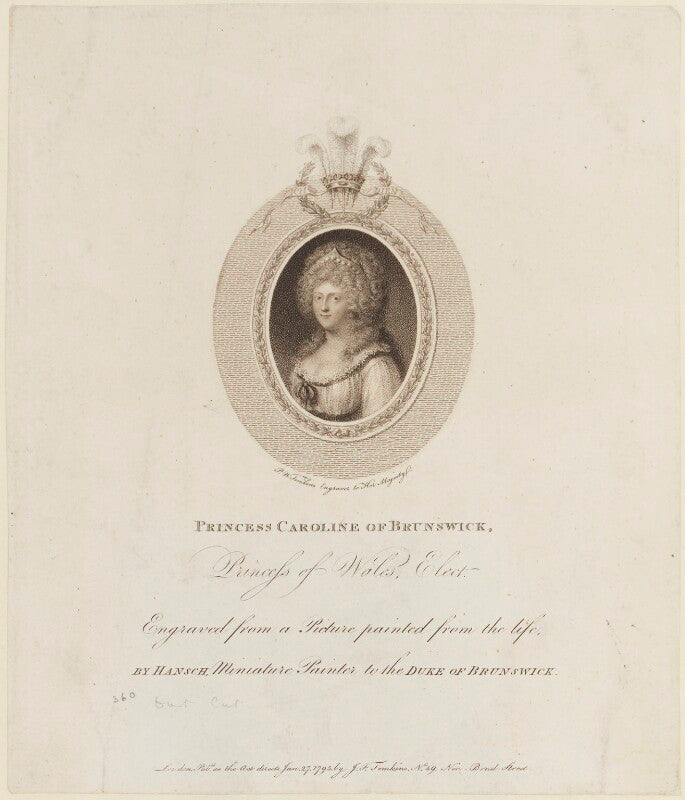 P. W. Tomkins Engraver to Her Majesty sc.
PRINCESS CAROLINE OF BRUNSWICK,
Princeſs of Wales, Elect.
Engraved from a Picture painted from the life,
BY HANSCH, Miniature Painter to the DUKE OF BRUNSWICK.
360
London, Pub.d as the Act directs Jan. 27, 1795, by J. F. Tomkins, No. 49, New Bond Street